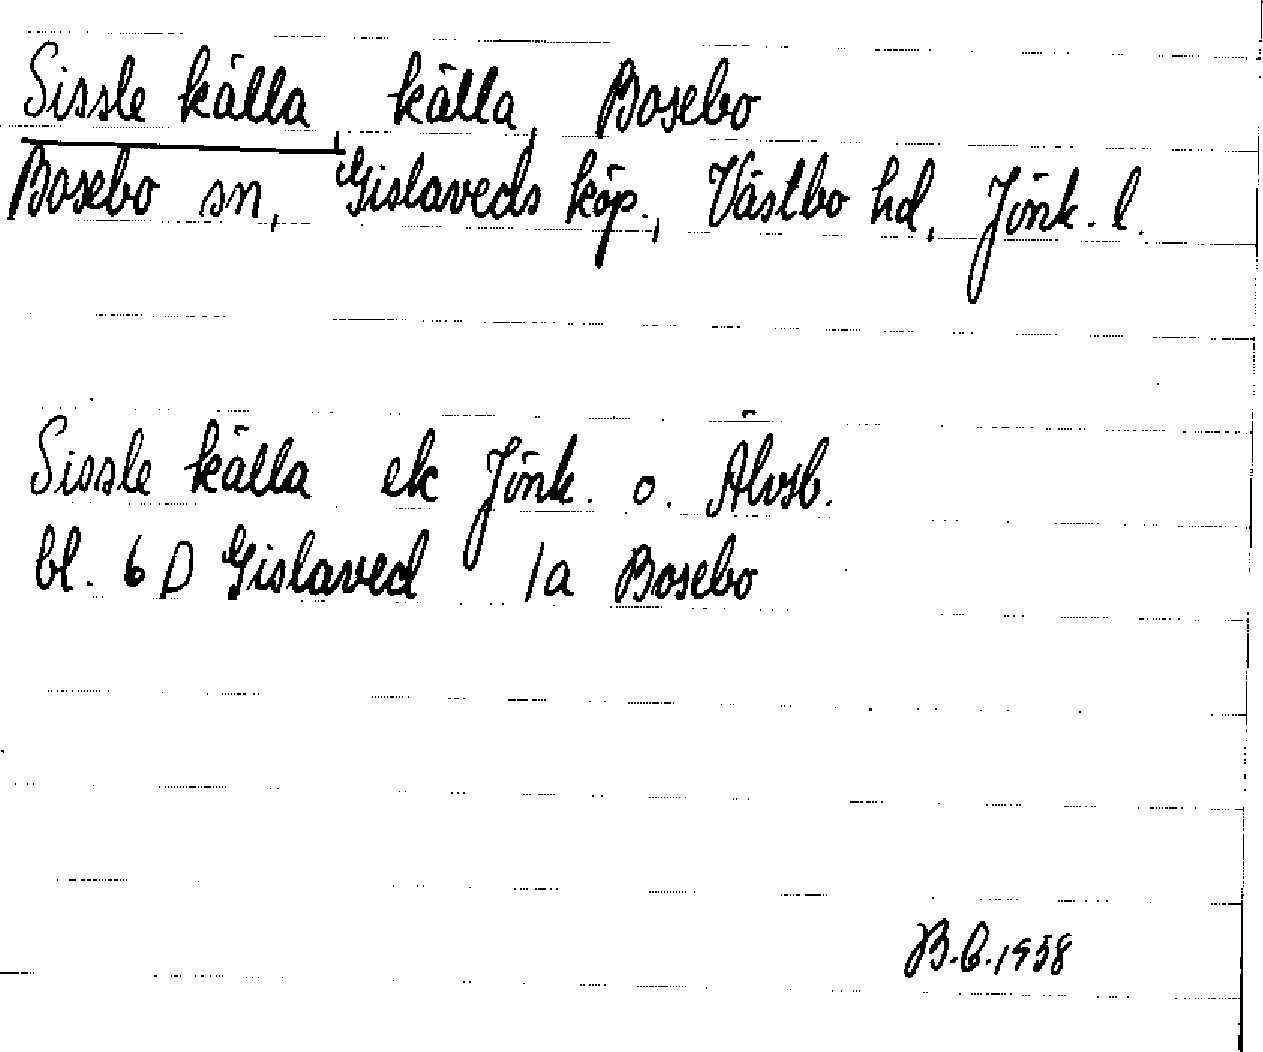 Sissle källa, källa, Bosebo
Bosebo sn, Gislaveds köp., Västbo hd, Jönk. l.
Sissle källa ek Jönk. o. Älvsb.
bl. 6 D Gislaved 1a Bosebo
B.C. 1958